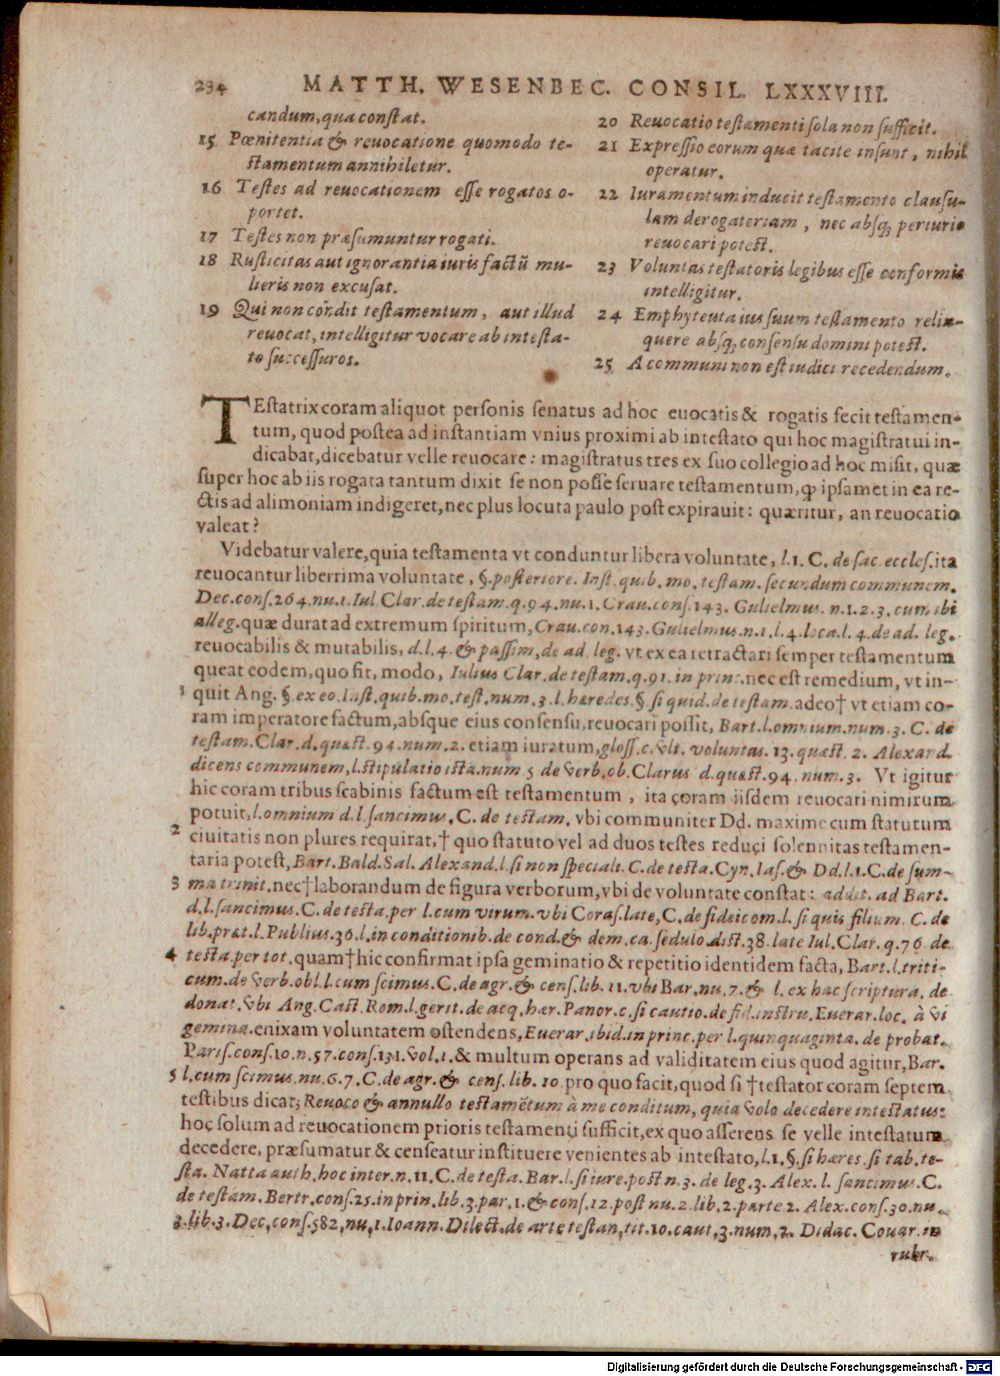 234 MATTH. WESENBEC. CONSIL. LXXXVIII.
candum, qua constat.
15 Pœnitentia & reuocatione quomodo te-
stamentum annihiletur.
16 Testes ad reuocationem esse rogatos o-
portet.
17 Testes non præsumuntur rogati.
18 Rusticitas aut ignorantia iuris factū mu-
lieris non excusat.
19 Qui non condit testamentum, aut illud
reuocat, intelligitur vocare ab intesta-
to successuros.
20 Reuocatio testamenti sola non sufficit.
21 Expressio eorum quæ tacite insunt, nihil
operatur.
22 Iuramentum inducit testamento clausu-
lam derogatoriam, nec absq; periurio
reuocari potest.
23 Voluntas testatoris legibus esse conformis
intelligitur.
24 Emphyteuta ius suum testamento relin-
quere absq; consensu domini potest.
25 A communi non est iudici recedendum.
TEstatrix coram aliquot personis senatus ad hoc euocatis & rogatis fecit testamen-
tum, quod postea ad instantiam vnius proximi ab intestato qui hoc magistratui in-
dicabat, dicebatur velle reuocare: magistratus tres ex suo collegio ad hoc misit, quæ
super hoc ab iis rogata tantum dixit se non posse seruare testamentum, ꝙ ipsamet in ea re-
ctis ad alimoniam indigeret, nec plus locuta paulo post expirauit: quæritur, an reuocatio
valeat?
Videbatur valere, quia testamenta vt conduntur libera voluntate, l.1. C. de sac. eccles. ita
reuocantur liberrima voluntate, §. posteriore. Inst. quib. mo. testam. secundum communem.
Dec. cons. 264. nu. 1. Iul Clar. de testam. q. 94. nu. 1. Crau. cons. 143. Gulielmus. n. 1. 2. 3. cum ibi
alleg. quæ durat ad extremum spiritum, Crau. con. 143. Gulielmus. n. 1, l. 4. loca. l. 4. de ad. leg.
reuocabilis & mutabilis, d. l. 4. & passim, de ad. leg. vt ex ea retractari semper testamentum
queat eodem, quo fit, modo, Iulius Clar. de testam. q. 91. in princ. nec est remedium, vt in-
1 quit Ang. §. ex eo. Inst. quib. mo. test. num. 3. l. hæredes. § si quid. de testam. adeo† vt etiam co-
ram imperatore factum, absque eius consensu, reuocari possit, Bart. l. omnium. num. 3. C. de
testam. Clar. d. quæst. 94. num. 2. etiam iuratum, gloss. c. vlt. voluntas. 13. quæst. 2. Alexand.
dicens communem, l. stipulatio ista. num 5 de verb. ob. Clarus d. quæst. 94. num. 3. Vt igitur
hic coram tribus scabinis factum est testamentum, ita coram iisdem reuocari nimirum
potuit, l. omnium d. l. sancimus, C. de testam. vbi communiter Dd. maxime cum statutum
2 ciuitatis non plures requirat, † quo statuto vel ad duos testes reduci solennitas testamen-
taria potest, Bart. Bald. Sal. Alexand. l. si non speciali. C. de testa. Cyn. Ias. & Dd. l. 1. C. de sum-
3 ma trinit. nec † laborandum de figura verborum, vbi de voluntate constat: addit. ad Bart.
d. l. sancimus. C. de testa. per l. cum virum. vbi Coras. late, C. de fideicom. l. si quis filium. C. de
lib. præt. l. Publius. 36. l. in conditionib. de cond. & dem. ca. sedulo. dist. 38. late Iul. Clar. q. 76. de
4 testa. per tot. quam † hic confirmat ipsa geminatio & repetitio identidem facta, Bart. l. triti-
cum. de verb. obl. l. cum scimus. C. de agr. & cens. lib. 11. vbi Bar. nu. 7. & l. ex hac scriptura, de
donat. vbi Ang. Cast. Rom. l. gerit. de acq. hær. Panor. c. si cautio. de fid. instru. Euerar. loc. à vi
gemina. enixam voluntatem ostendens, Euerar. ibid. in princ. per l. quinquaginta. de probat.
Paris. cons. 10. n. 57. cons. 131. vol. 1. & multum operans ad validitatem eius quod agitur, Bar.
5 l. cum scimus. nu. 6. 7. C. de agr. & cens. lib. 10. pro quo facit, quod si † testator coram septem
testibus dicat; Reuoco & annullo testamētum à me conditum, quia volo decedere intestatus:
hoc solum ad reuocationem prioris testamenti sufficit, ex quo asserens se velle intestatum
decedere, præsumatur & censeatur instituere venientes ab intestato, l. 1. §. si hæres. si tab. te-
sta. Natta auth. hoc inter. n. 11. C. de testa. Bar. l. si iure. post n. 3. de leg. 3. Alex. l. sancimus. C.
de testam. Bertr. cons. 25. in prin. lib. 3. par. 1. & cons. 12. post nu. 2. lib. 2. parte 2. Alex. cons. 30. nu.
3. lib. 3. Dec, cons. 582, nu, 1. Ioann. Dilect. de arte testan, tit. 10. caut, 3. num, 2. Didac. Couar. in
rubr.
Digitalisierung gefördert durch die Deutsche Forschungsgemeinschaft - DFG